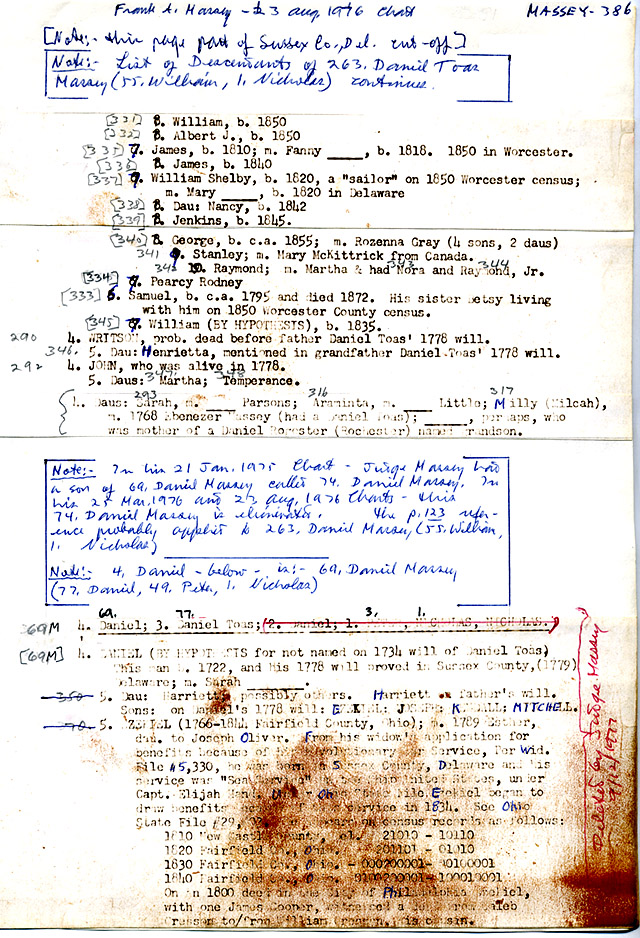 Frank A. Massey - 3 Aug, 1976 Chart MASSEY-386
[Note:- this page part of Sussex Co., Del. cut-off]
Note:- List of Descendants of 263. Daniel Toas
Massey (55. William, 1. Nicholas) continues.
[331] 8. William, b. 1850
[332] 8. Albert J., b. 1850
[335] 7. James, b. 1810; m. Fanny _____, b. 1818. 1850 in Worcester.
[336] 8. James, b. 1840
[337] 7. William Shelby, b. 1820, a "sailor" on 1850 Worcester census;
m. Mary _____, b. 1820 in Delaware
[338] 8. Dau: Nancy, b. 1842
[339] 8. Jenkins, b. 1845.
[340] 8. George, b. c.a. 1855; m. Rozenna Gray (4 sons, 2 daus)
341 9. Stanley; m. Mary McKittrick from Canada.
343 344
342 10. Raymond; m. Martha & had Nora and Raymond, Jr.
[334] 7. Pearcy Rodney
[333] 6. Samuel, b. c.a. 1795 and died 1872. His sister Betsy living
with him on 1850 Worcester County census.
[345] 7. William (BY HYPOTHESIS), b. 1835.
290 4. WRITSON, prob. dead before father Daniel Toas' 1778 will.
346. 5. Dau: Henrietta, mentioned in grandfather Daniel Toas' 1778 will.
292 4. JOHN, who was alive in 1778.
347 348
5. Daus: Martha; Temperance.
293 316 317
4. Daus: Sarah, m. ___ Parsons; Araminta, m. ____ Little; Milly (Milcah),
m. 1768 Ebenezer Massey (had a Daniel Toas); _____, perhaps, who
was mother of a Daniel Rogester (Rochester) named grandson.
Note:- In his 21 Jan. 1975 Chart - Judge Massey had
a son of 69. Daniel Massey called 74. Daniel Massey. In
his 25 Mar. 1976 and 23 Aug, 1976 Charts - this
74. Daniel Massey is eliminated. The p. 123 refer-
ence probably applies to 263. Daniel Massey (55. William,
1. Nicholas)
Note:- 4. Daniel - below - is:- 69. Daniel Massey
(77. Daniel, 49. Peter, 1. Nicholas)
69. 77. 3. 1.
69M 4. Daniel; 3. Daniel Toas; (2. Daniel; 1. NICHOLAS, NICHOLAS.
[69M] 4. DANIEL (BY HYPOTHESIS for not named on 1734 will of Daniel Toas)
This man b. 1722, and his 1778 will proved in Sussex County, (1779)
Delaware; m. Sarah _____.
350 5. Dau: Harriett; possibly others. Harriett on father's will.
Sons: on Daniel's 1778 will: EZEKIEL; JOSEPH; KENDALL; MITCHELL.
70. 5. EZEKIEL (1766-1844, Fairfield County, Ohio); m. 1789 Esther,
dau. to Joseph Oliver. From his widow's application for
benefits because of his Revolutionary War Service, Per Wid.
File #5,330, he was born in Sussex County, Delaware and his
service was "Sea Service" United States, under
Capt. Elijah Ohio Ezekiel began to
draw benefits service in 1834. See Ohio
State File #29, census records as follows:
1810 New Castle Del. 21010 - 10110
1820 Fairfield Co., - 01010
1830 Fairfield Co., Ohio. - 000200001 - 00100001
1840 Fairfield - 100010001
On an 1800 deed Philadelphia Ezekiel,
with one James Cooper, Caleb
to/from William his cousin.
Deleted by Judge Massey
9/12/1977